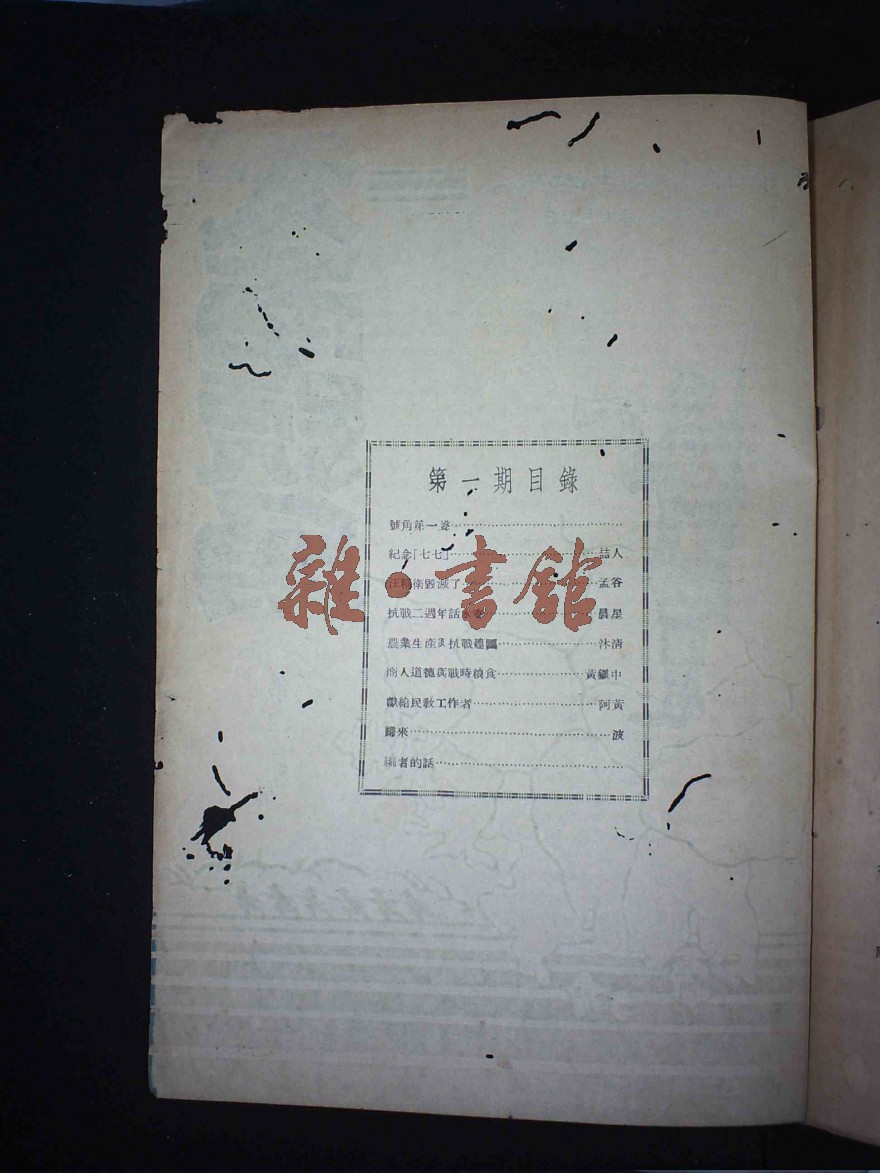 第一期目錄
號角第一聲
紀念「七七」 喆人
汪精衛毀滅了 孟谷
抗戰二週年話 晨星
農業生產與抗戰建國 沐清
商人道德與戰時糧食 黃鐵中
獻給民教工作者 阿黃
歸來 波
編者的話
雜·書館